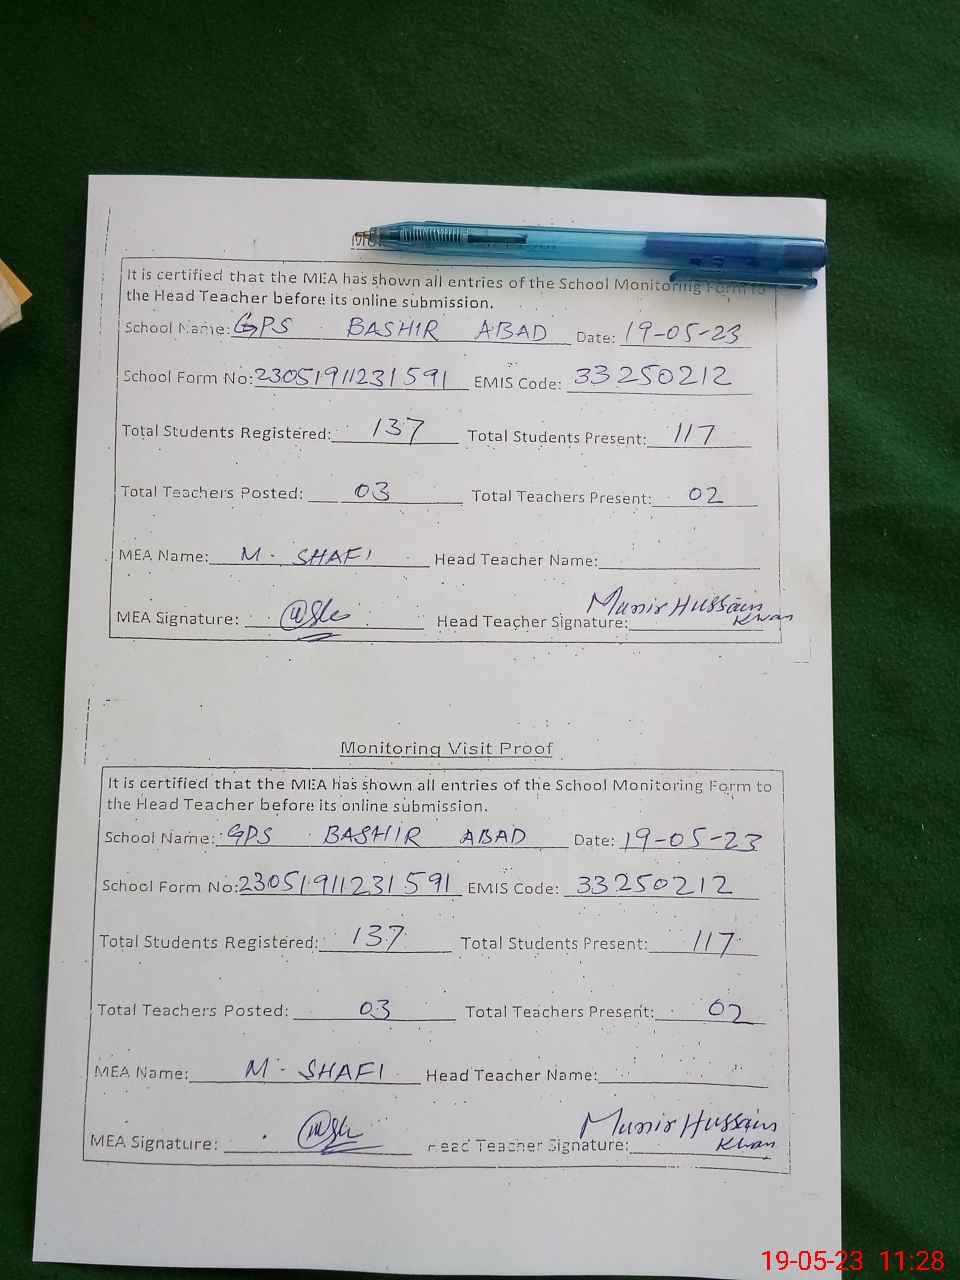 It is certified that the MEA has shown all entries of the School Monitoring Form to
the Head Teacher before its online submission.
School Name: GPS BASHIR ABAD Date: 19-05-23
School Form No: 23051911231591 EMIS Code: 33250212
Total Students Registered: 137 Total Students Present: 117
Total Teachers Posted: 03 Total Teachers Present: 02
MEA Name: M. SHAFI Head Teacher Name:
Munir Hussain
MEA Signature: Head Teacher Signature:
Monitoring Visit Proof
It is certified that the MEA has shown all entries of the School Monitoring Form to
the Head Teacher before its online submission.
School Name: GPS BASHIR ABAD Date: 19-05-23
School Form No: 23051911231591 EMIS Code: 33250212
Total Students Registered: 137 Total Students Present: 117
Total Teachers Posted: 03 Total Teachers Present: 02
MEA Name: M. SHAFI Head Teacher Name:
Munir Hussain
MEA Signature: Head Teacher Signature:
19-05-23 11:28